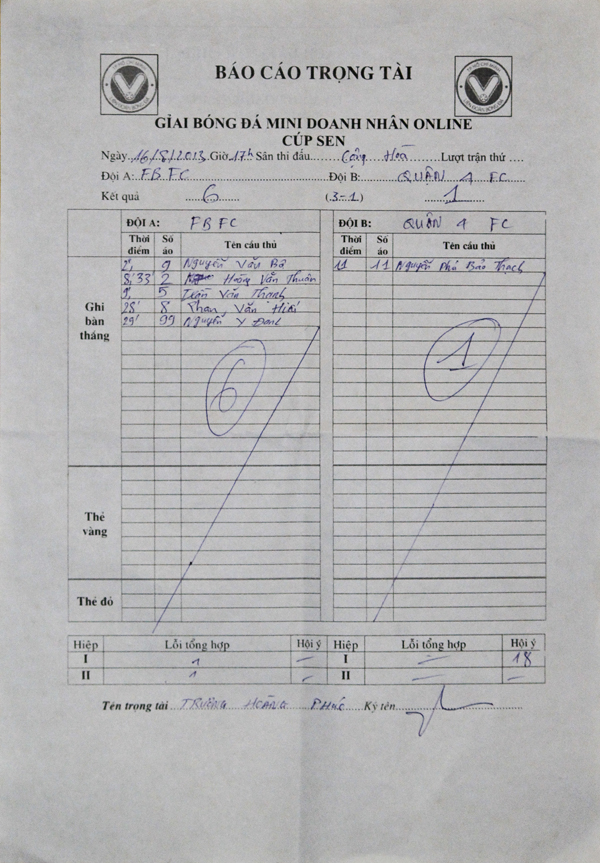 BÁO CÁO TRỌNG TÀI
GIẢI BÓNG ĐÁ MINI DOANH NHÂN ONLINE
CÚP SEN
Ngày 16/8/2013 Giờ 17h Sân thi đấu Cộng Hoà Lượt trận thứ
Đội A: FB FC Đội B: QUÂN 4 FC
Kết quả 6 (3-1) 1
ĐỘI A: FB FC ĐỘI B: QUÂN 4 FC
Thời điểm Số áo Tên cầu thủ Thời điểm Số áo Tên cầu thủ
Ghi bàn thắng
2', 9 Nguyễn Văn Bá 11 11 Nguyễn Phú Bảo Thạch
8', 33' 2 Hoàng Văn Thuân
9', 5 Trần Văn Thanh
28' 8 Phan Văn
29' 99 Nguyễn Y Danh
6 1
Thẻ vàng
Thẻ đỏ
Hiệp Lỗi tổng hợp Hội ý Hiệp Lỗi tổng hợp Hội ý
I 1 – I – 18
II 1 – II – –
Tên trọng tài TRƯƠNG HOÀNG PHÚC Ký tên